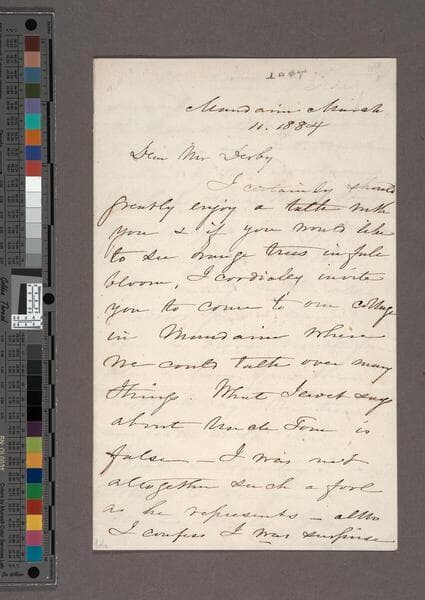 Mandarin March
11. 1884
Dear Mr Derby
I certainly should
greatly enjoy a talk with
you & if you would like
to see orange trees in full
bloom, I cordially invite
you to come to our cottage
in Mandarin where
we could talk over many
things. What Jewett says
about Uncle Tom is
false — I was not
altogether such a fool
as he represents — altho
I confess I was surprise